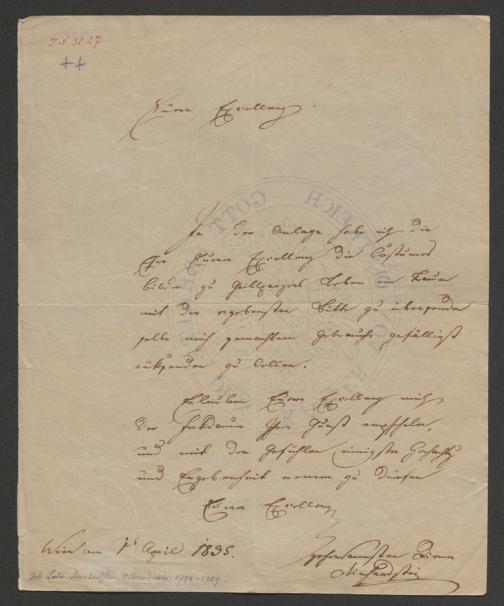 I.N 3027
++
Euere Excellenz.
In der Anlage habe ich die
Ehre Euere Excellenz die Costumes
Bilder zu Grillparzers Leben ein Traum
mit der ergebensten Bitte zu übersenden
selbe nach gemachtem Gebrauche gefälligst
rücksenden zu wollen.
Erlauben Euere Excellenz mich
der Gunst empfehlen,
und mit den Gefühlen innigster
und Ergebenheit nennen zu dürfen
Euere Excellenz
Wien am 1 April 1835.
gehorsamsten Diener
Deinhardstein